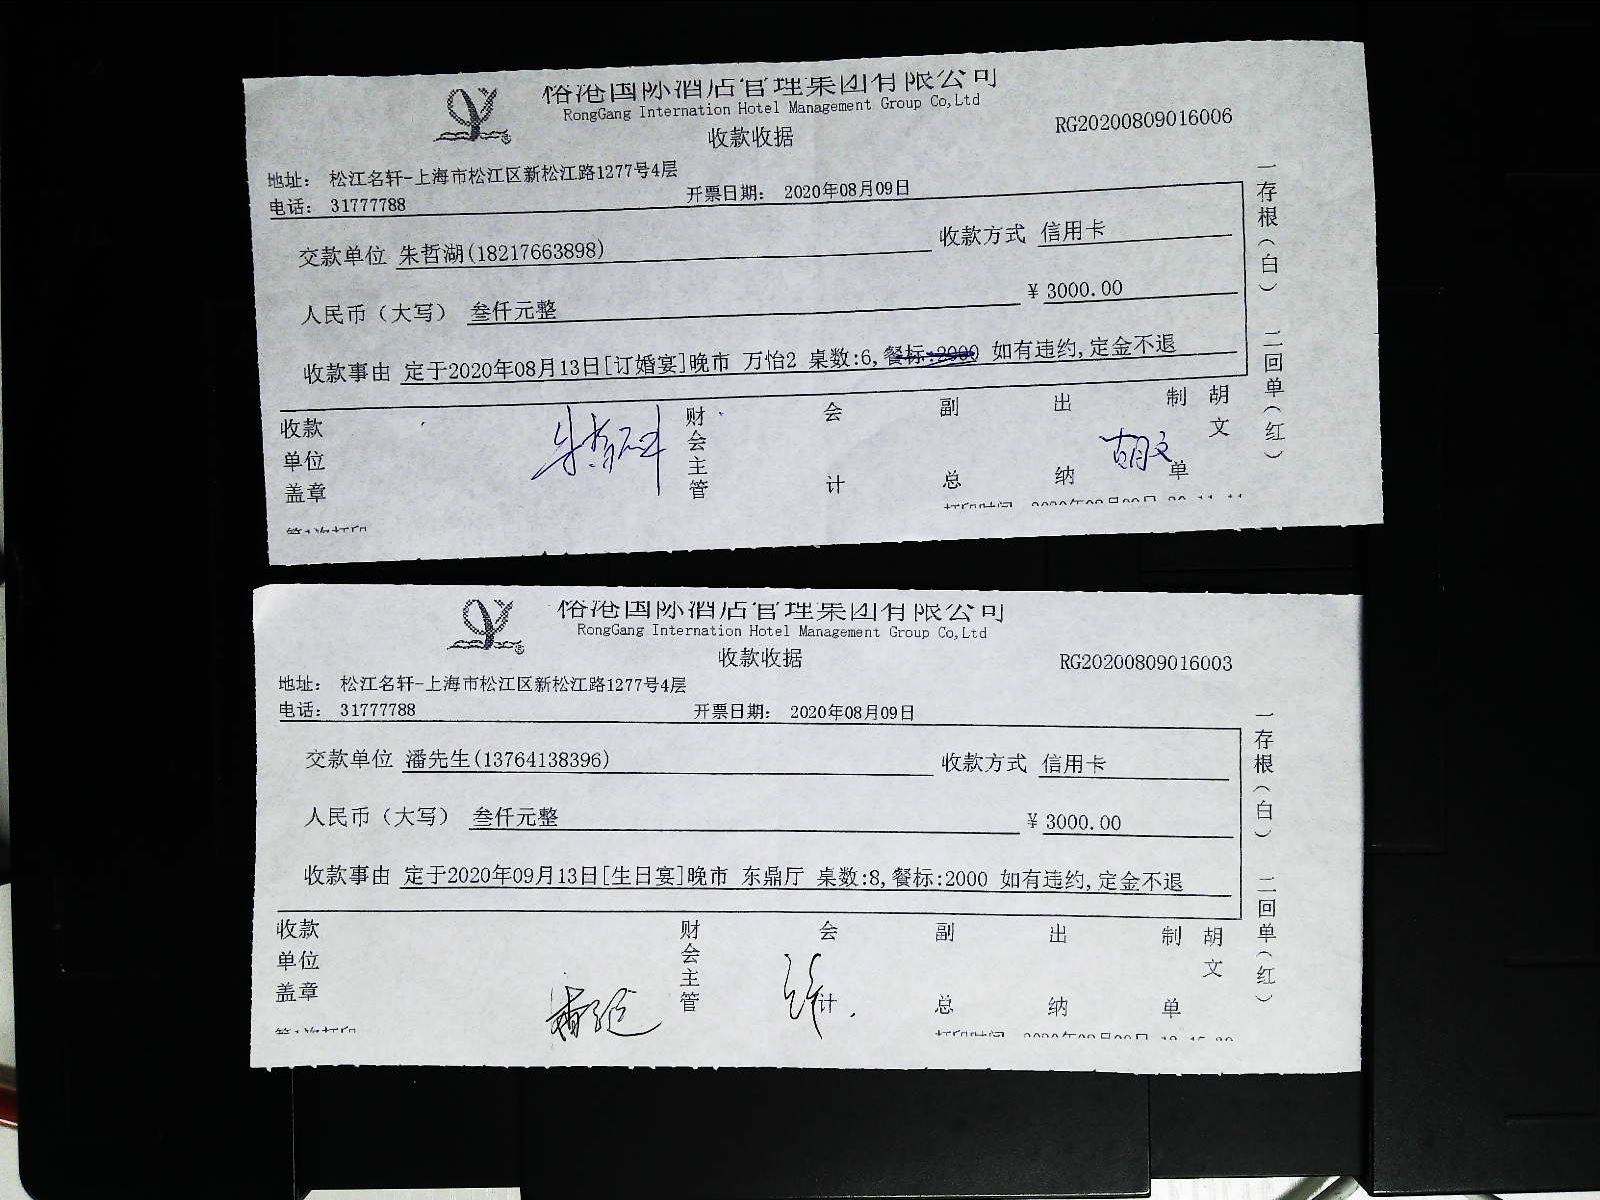 俗港国际酒店管理集团有限公司
RongGang Internation Hotel Management Group Co,Ltd
收款收据
RG20200809016006
地址： 松江名轩-上海市松江区新松江路1277号4层
电话： 31777788 开票日期： 2020年08月09日
交款单位 朱哲湖(18217663898) 收款方式 信用卡
人民币（大写） 叁仟元整 ￥ 3000.00
收款事由 定于2020年08月13日[订婚宴]晚市 万怡2 桌数:6,餐标:2000 如有违约,定金不退
收款单位盖章 财会主管 会计 副总 出纳 胡文 制单 胡文
一存根（白） 二回单（红）
第1次打印
俗港国际酒店管理集团有限公司
RongGang Internation Hotel Management Group Co,Ltd
收款收据
RG20200809016003
地址： 松江名轩-上海市松江区新松江路1277号4层
电话： 31777788 开票日期： 2020年08月09日
交款单位 潘先生(13764138396) 收款方式 信用卡
人民币（大写） 叁仟元整 ￥ 3000.00
收款事由 定于2020年09月13日[生日宴]晚市 东鼎厅 桌数:8,餐标:2000 如有违约,定金不退
收款单位盖章 财会主管 会计 副总 出纳 制单 胡文
一存根（白） 二回单（红）
第1次打印